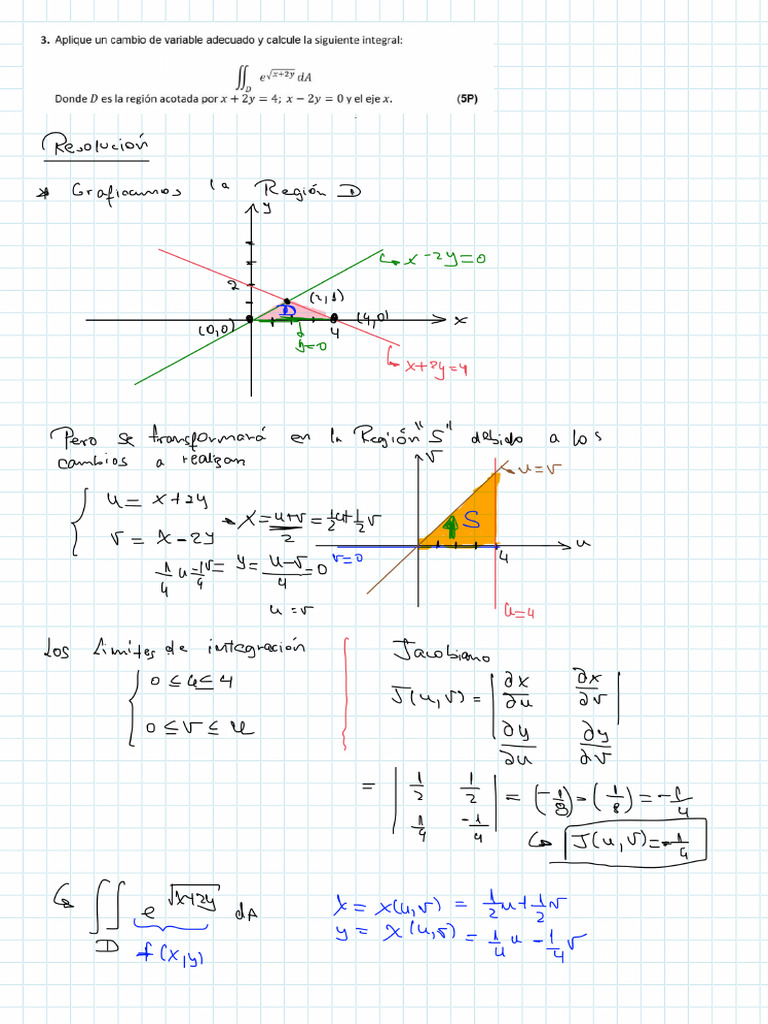 3. Aplique un cambio de variable adecuado y calcule la siguiente integral:
∬_D e^{√(x+2y)} dA
Donde D es la región acotada por x + 2y = 4; x − 2y = 0 y el eje x. (5P)
Resolución
* Graficamos la Región D
y
x-2y=0
2
(2,1)
D
(0,0) (4,0) x
4
y=0
x+2y=4
Pero se transformará en la Región "S" debido a los
cambios a realizar
v
u=v
{ u = x+2y
v = x-2y
x = (u+v)/2 = 1/2 u + 1/2 v
S
1/4 u - 1/4 v = y = (u-v)/4 = 0
v=0
4
u
u = v
u=4
Los límites de integración
{ 0 ≤ u ≤ 4
0 ≤ v ≤ u
Jacobiano
J(u,v) = | ∂x/∂u ∂x/∂v |
| ∂y/∂u ∂y/∂v |
= | 1/2 1/2 |
| 1/4 -1/4 | = (-1/8) - (1/8) = -1/4
J(u,v) = -1/4
∬_D e^{√(x+2y)} dA
f(x,y)
x = x(u,v) = 1/2 u + 1/2 v
y = x(u,v) = 1/4 u - 1/4 v